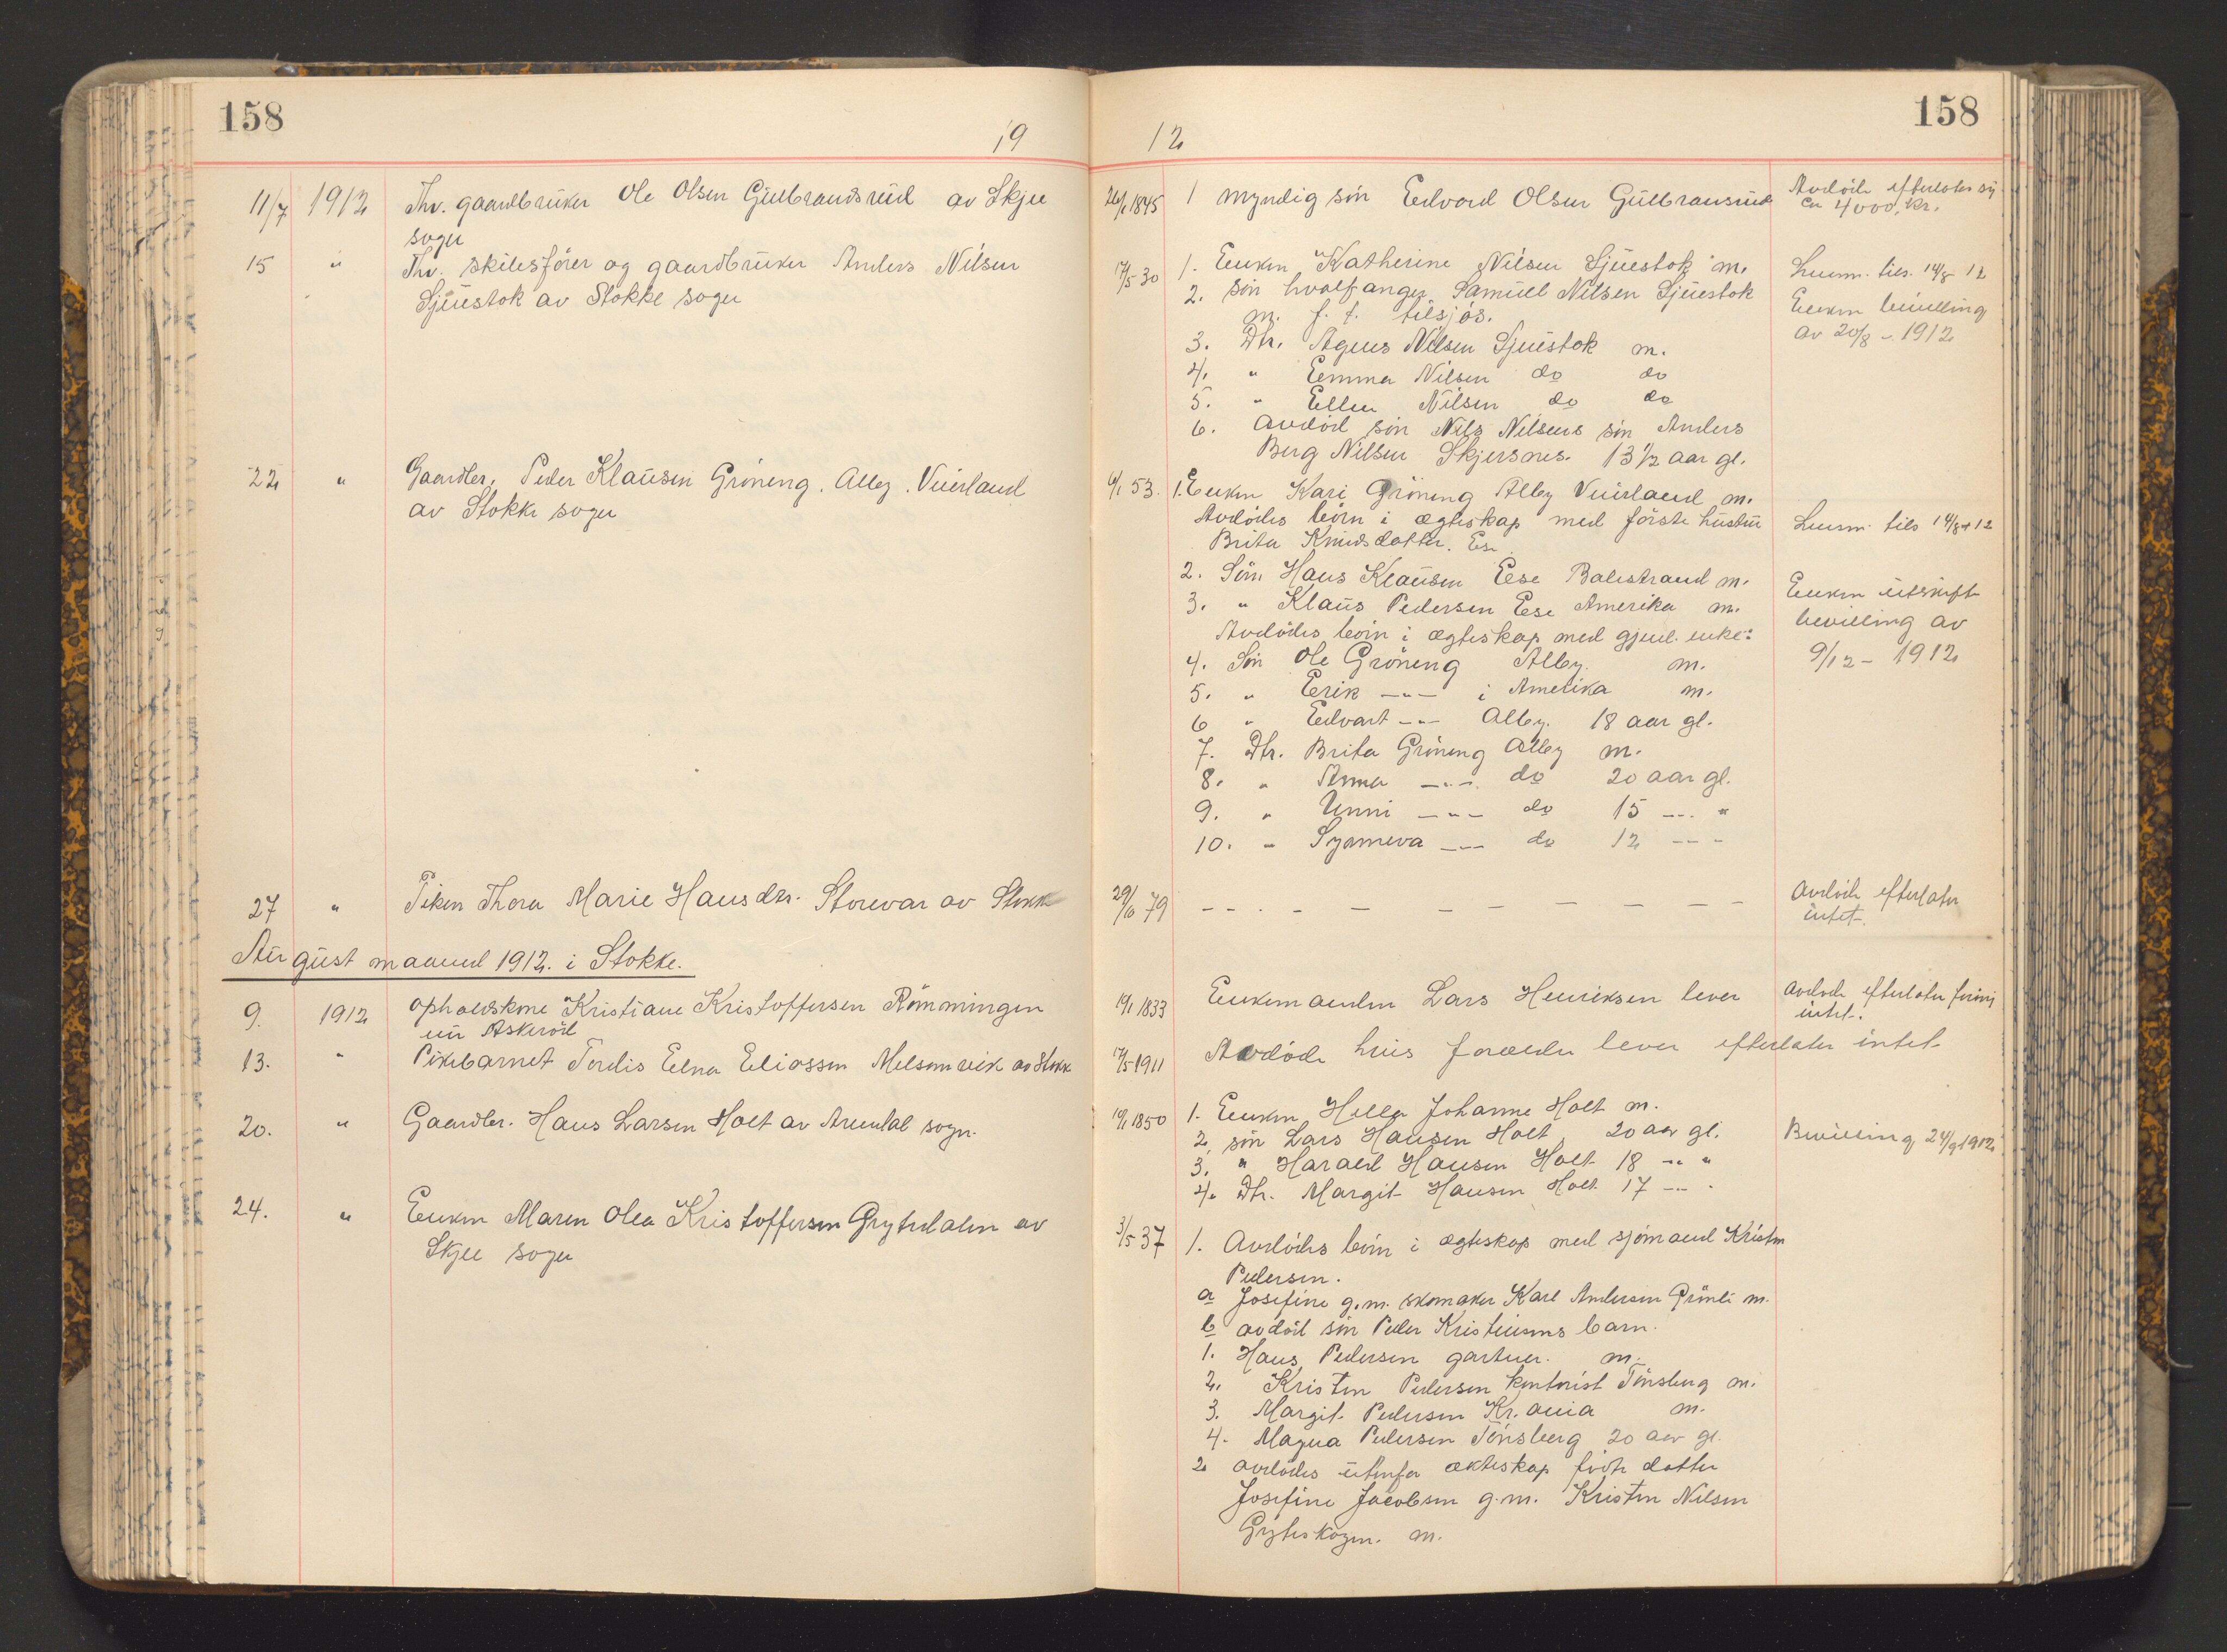 158
19
11/7 1912 Thv. gaardbruker Ole Olsen Gulbrandsrud av Skjee
sogn
15 " Thv. skibsfører og gaardbruker Anders Nilsen
Sjuestok av Stokke sogn
22 " Gaardbr. Peder Klausen Gröneng. Alby. Vuirland
av Stokke sogn
27 " Piken Thora Marie Hansdtr. Storevar av Stokke
August maaned 1912. i Stokke.
9. 1912 opholdskone Kristiane Kristoffersen Rømmingen
un Askerød
13. " Pikebarnet Tordis Elna Eliassen Melsomvik av Stokk
20. " Gaardbr. Hans Larsen Holt av Arendal sogn.
24. " Enken Maren Olea Kristoffersen Grytedalen av
Skjee sogn
158
12
26/1 1845 1 myndig søn Edvard Olsen Gulbransrud
Avdøde efterlater sig
ca 4000, kr.
17/5 30 1. Enken Katherine Nilsen Sjuestok m.
Lensm. tils. 14/8 12
2. søn hvalfanger Samuel Nilsen Sjuestok
m. f. t. tilsjøs.
Enken bevilling
av 20/8 - 1912
3. Dtr. Agnes Nilsen Sjuestok m.
4. " Emma Nilsen do do
5. " Ellen Nilsen do do
6. avdød søn Nils Nilsens søn Anders
Berg Nilsen Skjersnes. 13 1/2 aar gl.
4/1 53. 1. Enken Kari Gröneng Alby Vuirland m.
Avdødes børn i ægteskap med første hustru
Brita Knudsdatter. Ese
Lensm. tils 14/8 12
2. Søn Hans Klausen Ese Balestrand m.
3. " Klaus Pedersen Ese Amerika m.
Enken uitskift
bevilling av
9/12 - 1912
Avdødes børn i ægteskap med gjenl. enke:
4. Søn Ole Gröneng Alby. m.
5. " Erik -"- i Amerika m.
6 " Edvart -"- Alby. 18 aar gl.
7. Dtr. Brita Gröneng Alby m.
8. " Anna -"- do 20 aar gl.
9. " Unni -"- do 15 -"- "
10. " Synneva -"- do 12 -"- "
29/10 79 - - - - - - - - - - -
Avdøde efterlater
intet.
19/1 1833 Enkemanden Lars Henriksen lever
avdøde efterlater
intet.
17/5 1911 Avdøde hvis forældre lever efterlater intet
19/1 1850 1. Enken Hella Johanne Holt m.
2. søn Lars Hansen Holt 20 aar gl.
Bevilling 24/9 1912
3. " Harald Hansen Holt 18 -"- "
4. Dtr. Margit Hansen Holt 17 -"- "
3/5 37 1. Avdødes børn i ægteskap med sjømand Kristen
Pedersen.
a Josefine g.m. skomaker Karl Andersen Grønli m.
b avdød søn Peder Kristiansens barn.
1. Hans Pedersen gartner. m.
2. Kristen Pedersen kontorist Tønsberg m.
3. Margit Pedersen Kr.ania m.
4. Magna Pedersen Tønsberg 20 aar gl.
2 avdødes utenfor ækteskap fødte datter
Josefine Jacobsen g.m. Kristen Nilsen
Gryteskogen. m.